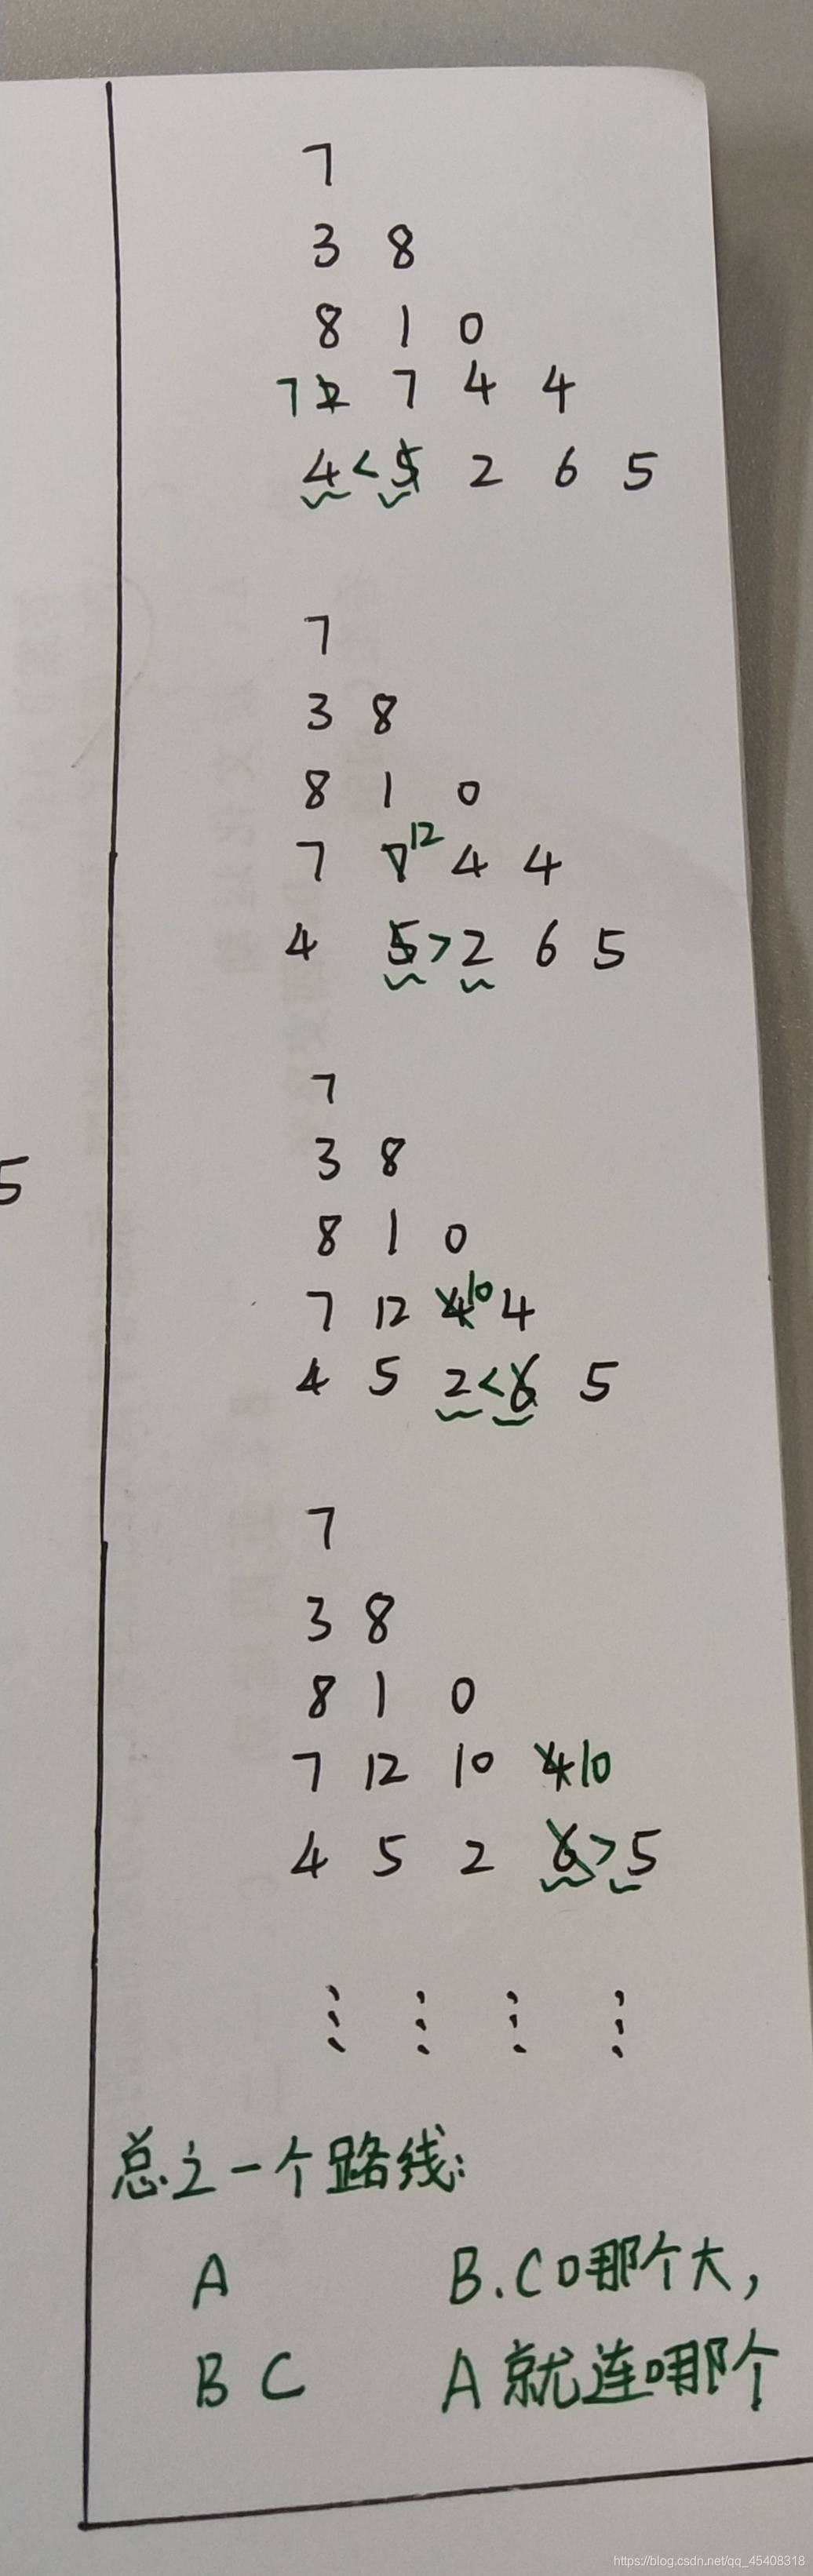 7
3 8
8 1 0
7 2 7 4 4
4 < 5 2 6 5
7
3 8
8 1 0
7 7 12 4 4
4 5 > 2 6 5
5
7
3 8
8 1 0
7 12 4 10 4
4 5 2 < 6 5
7
3 8
8 1 0
7 12 10 4 10
4 5 2 6 > 5
⋮ ⋮ ⋮ ⋮
总之一个路线:
A B.C哪个大,
B C A就连哪个
https://blog.csdn.net/qq_45408318